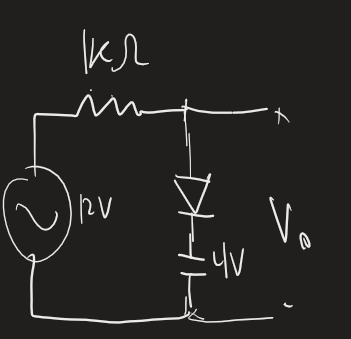 1kΩ
+
12V
4V
Vo
-